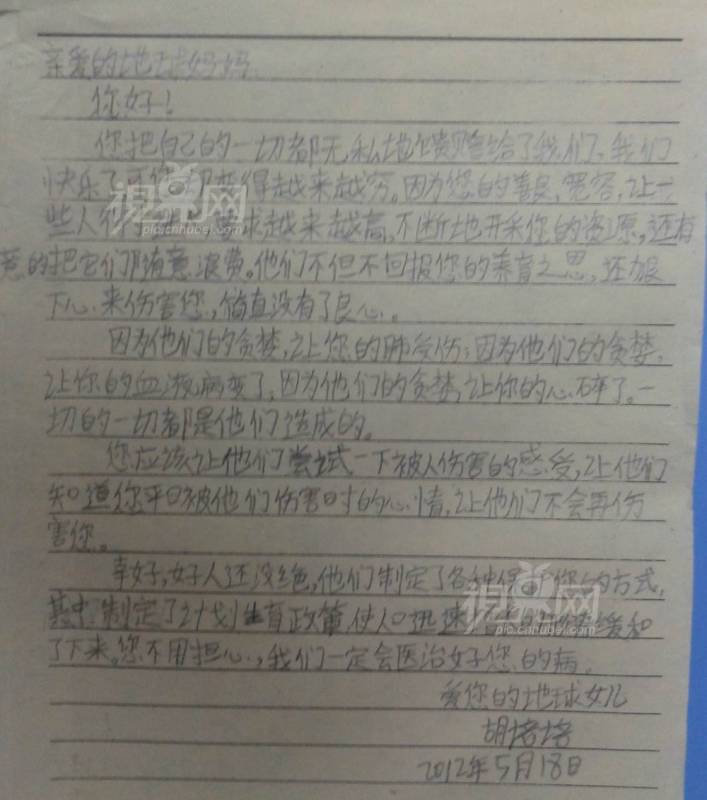 亲爱的地球妈妈
你好！
您把自己的一切都无私地馈赠给了我们，我们
快乐了可您却变得越来越穷。因为您的善良，宽容，让一
些人求越来越高，不断地开采您的资源，还有
意的把它们随意浪费。他们不但不回报您的养育之恩，还狠
下心来伤害您，简直没有了良心。
因为他们的贪婪，让您的肺受伤；因为他们的贪婪，
让你的血液病变了，因为他们的贪婪，让你的心碎了。一
切的一切都是他们造成的。
您应该让他们尝试一下被人伤害的感受，让他们
知道您平日被他们伤害时的心情，让他们不会再伤
害您。
幸好，好人还没绝，他们制定了各种保护您的方式，
其中制定了计划生育政策，使人口迅速缓和
了下来。您不用担心，我们一定会医治好您的病。
爱您的地球女儿
胡培培
2012年5月18日
视界网
pic.cnhubei.com
视界网
pic.cnhubei.com